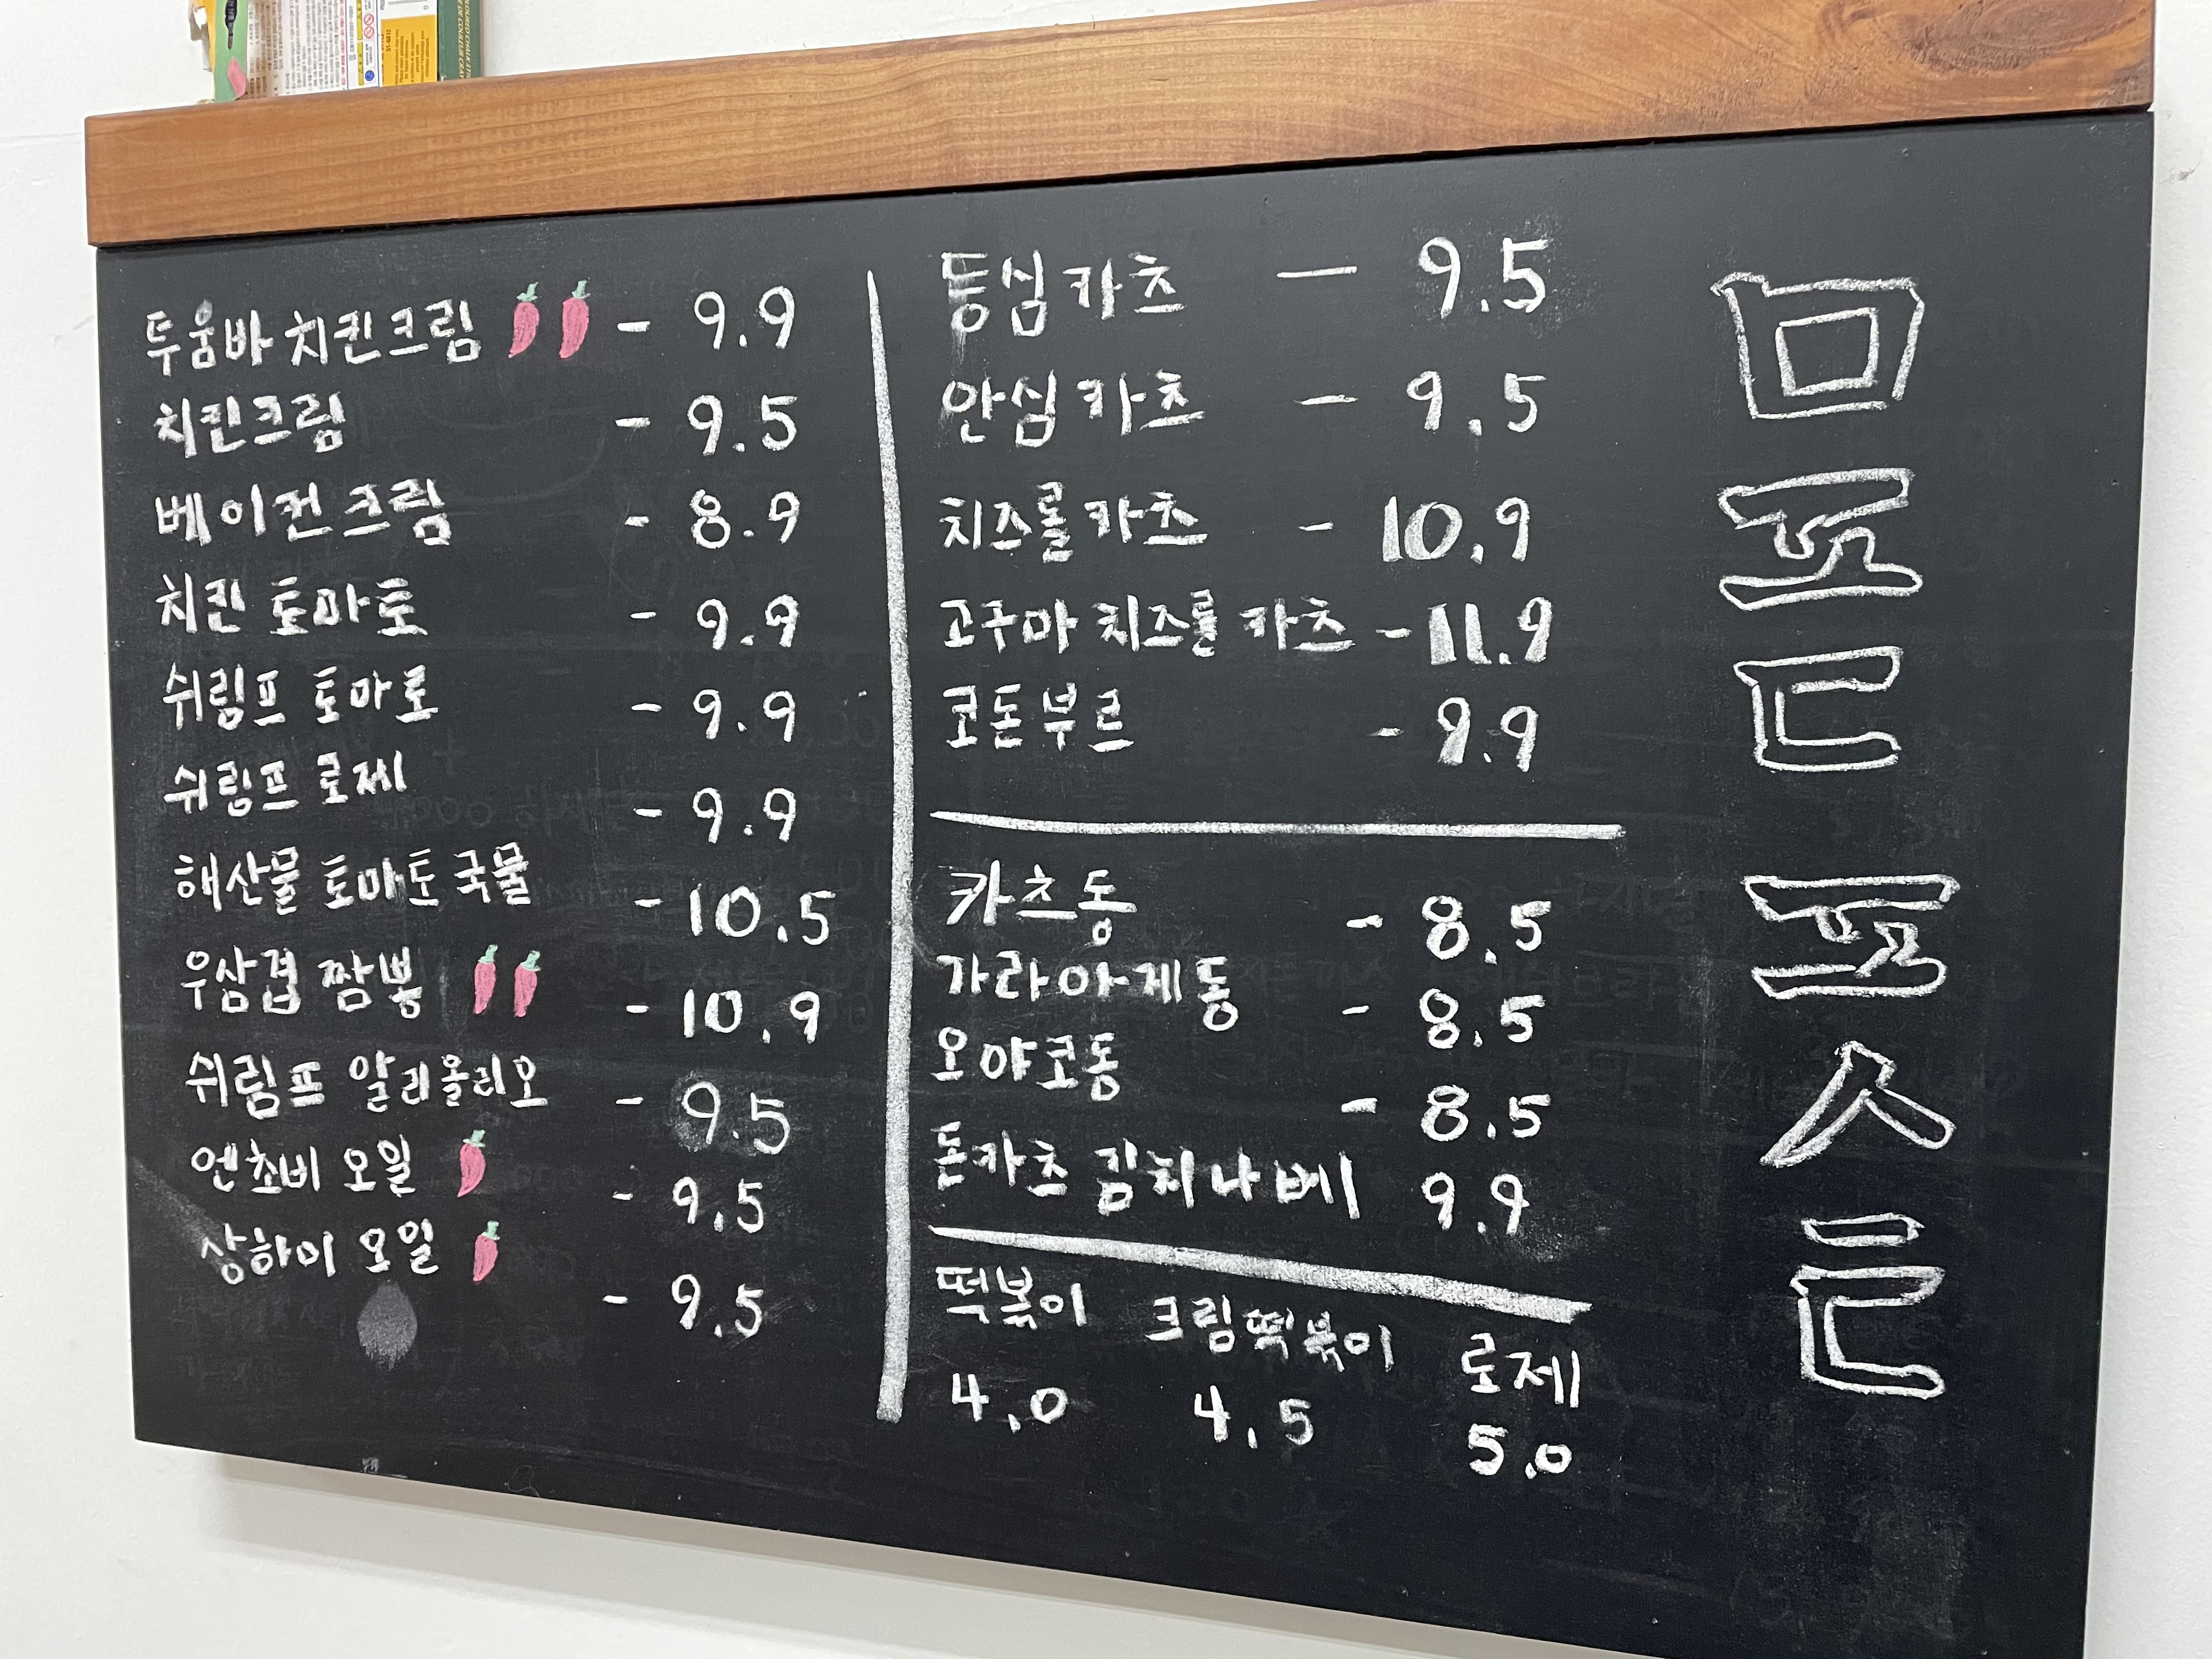 투움바 치킨크림 - 9.9
치킨크림 - 9.5
베이컨 크림 - 8.9
치킨 토마토 - 9.9
쉬림프 토마토 - 9.9
쉬림프 로제 - 9.9
해산물 토마토 국물 - 10.5
우삼겹 짬뽕 - 10.9
쉬림프 알리올리오 - 9.5
엔초비 오일 - 9.5
상하이 오일 - 9.5
등심카츠 - 9.5
안심카츠 - 9.5
치즈롤카츠 - 10.9
고구마 치즈롤 카츠 - 11.9
코돈부르 - 9.9
카츠동 - 8.5
가라아게동 - 8.5
오야코동 - 8.5
돈카츠 김치나베 9.9
떡볶이 크림떡볶이 로제
4.0 4.5 5.0
ㅁ
ㅍ
ㄷ
ㅍ
ㅅ
ㅡ
ㄷ